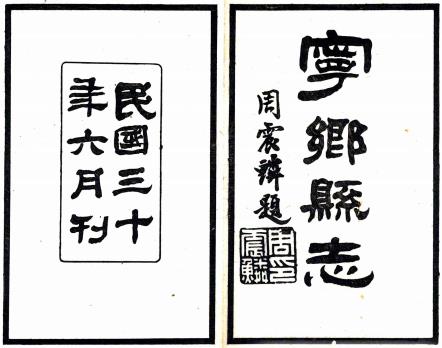 寧鄉縣志
周震鱗題
周震鱗印
民國三十
年六月刊